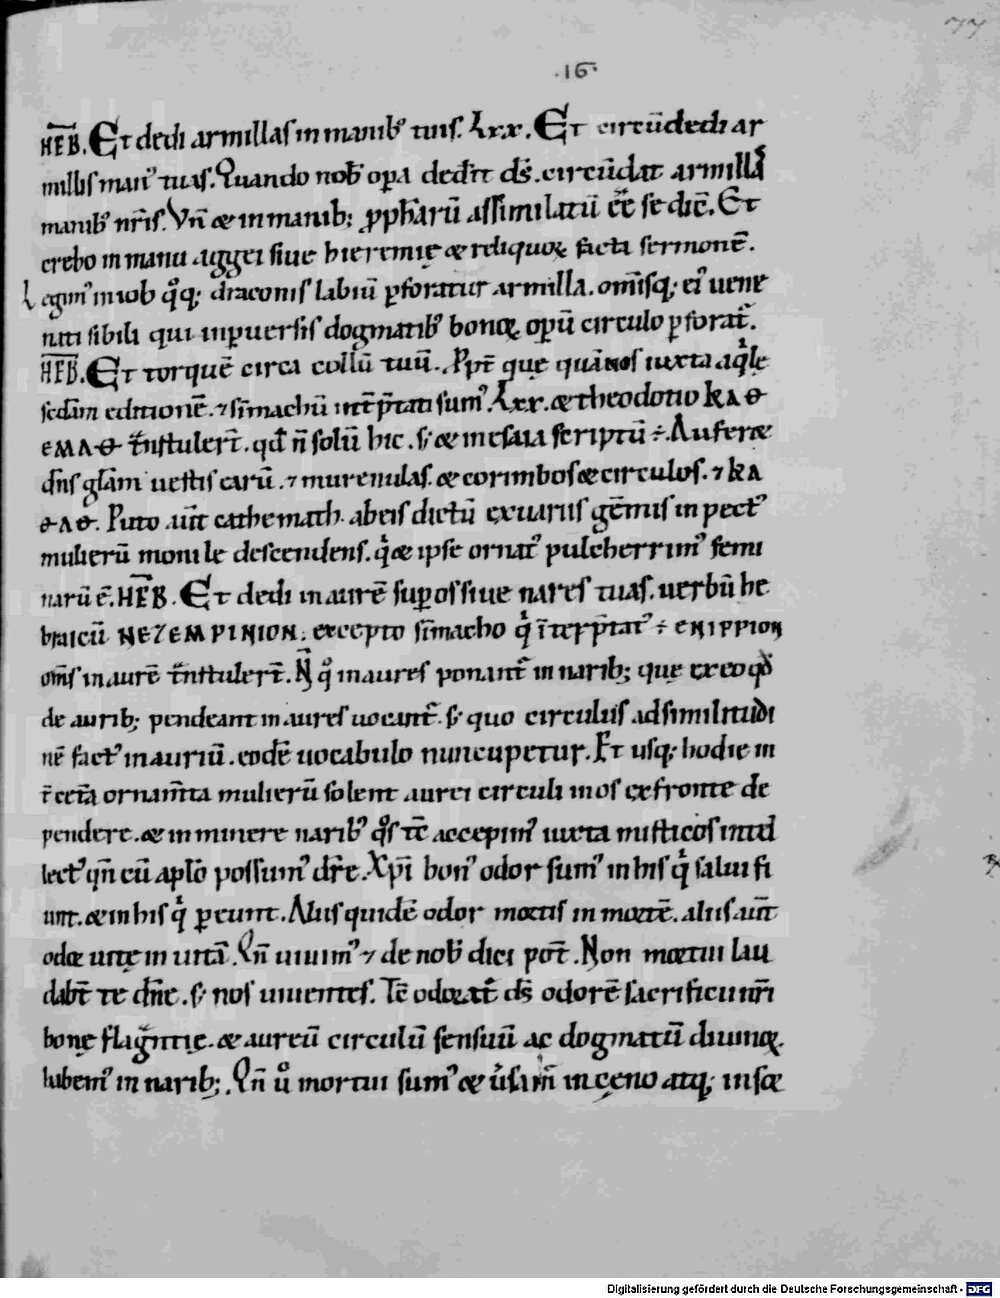 77
·16·
HEB̅. Et dedi armillas in manib' tuis. Lxx. Et circu̅dedi ar
millis man' tuas. Quando nob' op̅a ded̅it d̅s. circu̅dat armilla
manib' nr̅is. Vn̅ & in manib; p̱ph̅aru̅ assimilatu̅ ee̅ se dic̅. Et
crebo in manu aggei siue hieremię & reliquoꝝ facta sermone̅.
Legim' in iob q̊q; draconis labiu̅ ꝑforatur armilla. om̅isq; ei' uene
nati sibili qui in ꝑuersis dogmatib' bonoꝝ opu̅ circulo ꝑforat̅.
HEB̅. Et torque̅ circa collu̅ tuu̅. Ppt̅ quę qua̅nos iuxta aq̇lę
sed̅am editione̅. ⁊ si̅machu̅ int̅p̅tati sum'. Lxx. & theodotio KAΘ
EMAΘ t̅nstuler̅t. qd̅ n̅ solu̅ hic. s; & in esaia scriptu̅ ÷. Auferæ
dn̅s gl̅am uestis caru̅. ⁊ murenulas. & corimbos & circulos. ⁊ KA
ΘΛΘ. Puto aut̅ cathemath. ab eis dictu̅ ex uariis ge̅mis in pect'
mulieru̅ monile descendens. q̇æ ipse ornat' pulcherrim' femi
naru̅ e̅. HEB̅. Et dedi in aure̅ suꝑ os siue nares tuas. uerbu̅ he
braicu̅ NEZEMPINION: excepto si̅macho q̇ i̅terp̅tat' ÷ ENIPPION
om̅s in aure̅ t̅nstuler̅t. N̅ q̊ in aures ponant̅ in narib; quę ex eo qd̅
de aurib; pendeant in aures uocant̅. s; quo circulus ad similitudi
ne̅ fact' in auriu̅. eode̅ uocabulo nuncupetur. Et usq; hodie in
t̅ cet̅a ornam̅ta mulieru̅ solent aurei circuli in os ex fronte de
pendere. & inminere narib' q̊s te̅ accepim' iuxta misticos intel
lect' qn̅ cu̅ aplo̅ possum' dr̅e. Xp̅i bon' odor sum' in his q̇ salui fi
unt. & in his q̇ ꝑeunt. Aliis quide̅ odor mortis in morte̅. aliis aut̅
odor uitę in uita̅. Qn̅ uiuim' ⁊ de nob' dici pot̅. Non mortui lau
dab̅t te dn̅e. s; nos uiuentes. Te̅ odorat̅ d̅s odore̅ sacrificii nr̅i
bonę flag̅ntię. & aureu̅ circulu̅ sensuu̅ ac dogmatu̅ diuinoꝝ.
habem' in narib;. Qn̅ ů mortui sum' & u̇sam̅ in cęno atq; in sor
Digitalisierung gefördert durch die Deutsche Forschungsgemeinschaft - DFG